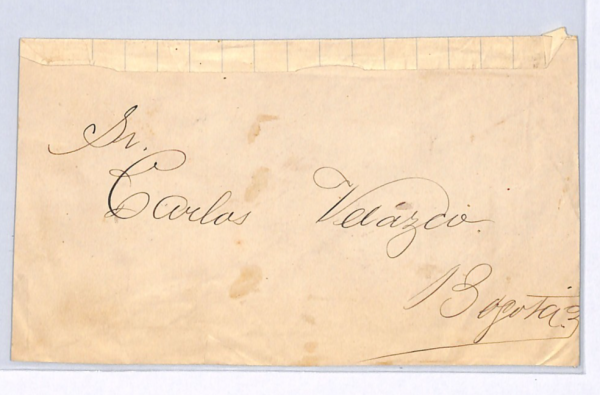 Sr.
Carlos Velázco.
Bogotá.